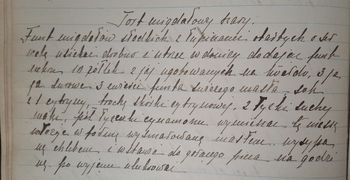 Tort migdałowy szary.
Funt migdałów słodkich z łupinami otartych o ser
wetę usiekać drobno i utrzeć w donicy dodając funt
cukru, 10 żółtek z jaj ugotowanych na twardo, 3 ja
ja surowe, 3 ćwierci funta świeżego masła, sok
z 1 cytryny, trochę skórki cytrynowej, 2 łyżki suchej
mąki, pół łyżeczki cynamonu wymieszać, tę masę
włożyć w formę wysmarowaną masłem, wysypa
ną chlebem i wstawić do gorącego pieca na godzi
nę, po wyjęciu ulukrować.